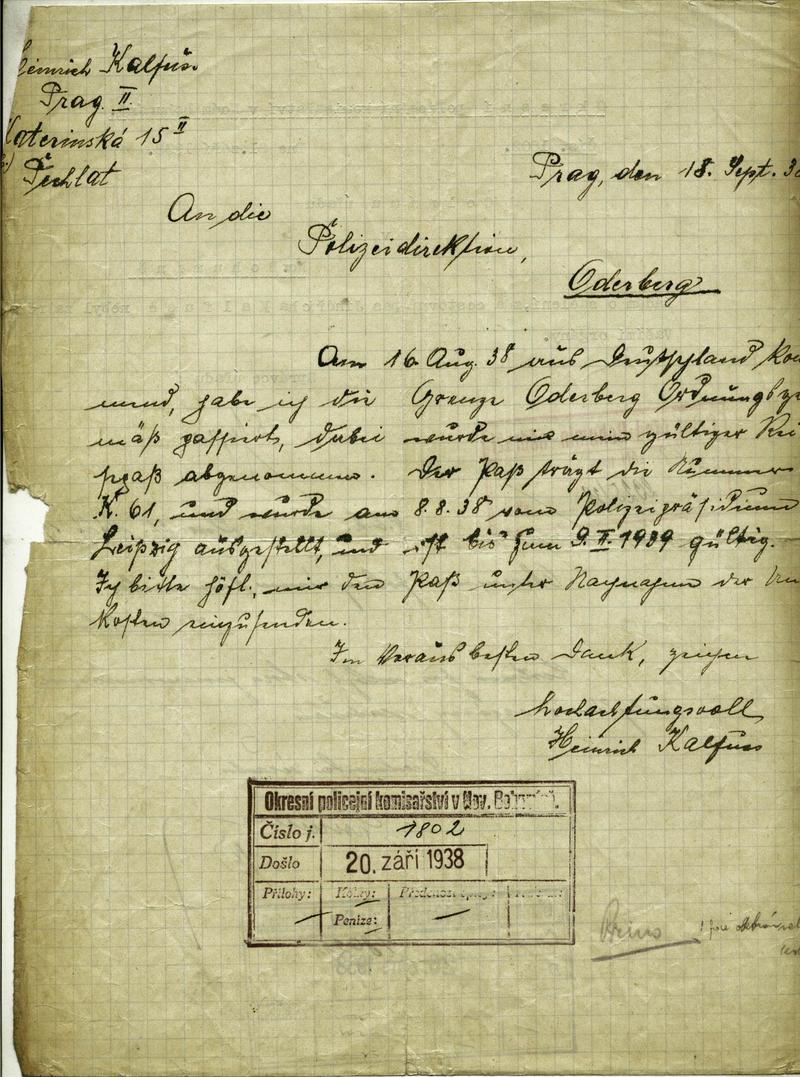 Heinrich Kalfus.
Prag. II.
Katerinská 15 II
Pěchlat
Prag, den 18. Sept. 38
An die
Polizeidirektion,
Oderberg
Am 16. Aug. 38 aus Deutschland kom
mend, habe ich die Grenze Oderberg Ordnungsge
mäß passiert, dabei wurde mir mein gültiger Rei
sepaß abgenommen. Der Paß trägt die Nummer
K. 61, und wurde am 8.8.38 vom Polizeipräsidium
Leipzig ausgestellt, und ist bis zum 9. II. 1939 gültig.
Ich bitte höfl., mir den Paß unter Nachnahme der Un
kosten einzusenden.
Im Voraus besten Dank, zeichne
hochachtungsvoll
Heinrich Kalfuss
Okresní policejní komisařství v Nov. Bohumíně.
Číslo j. 1802
Došlo 20. září 1938
Přílohy: Kolky:
Peníze: